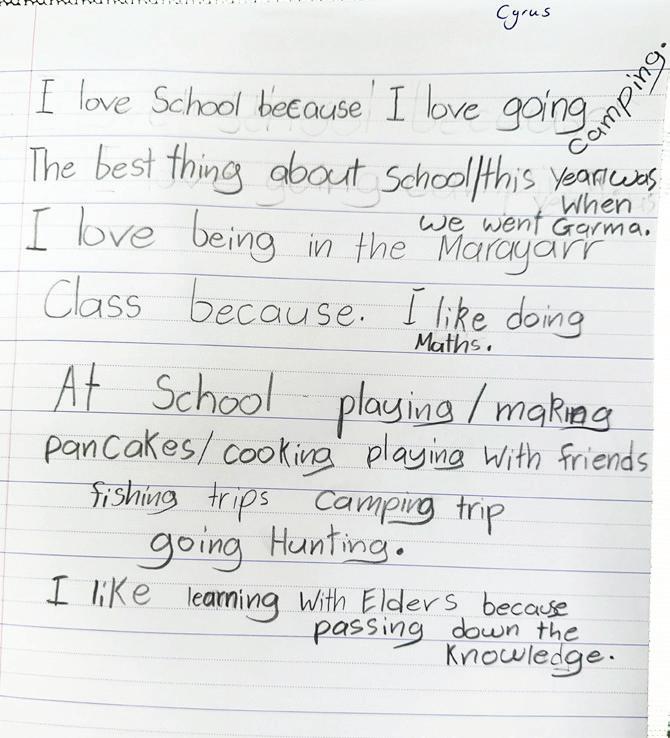 Cyrus
I love School because I love going camping.
The best thing about School/this year/was
When
we went Garma.
I love being in the Marayarr
Class because. I like doing
Maths.
At School playing/making
pancakes/cooking playing with friends
fishing trips camping trip
going Hunting.
I like learning with Elders because
passing down the
Knowledge.